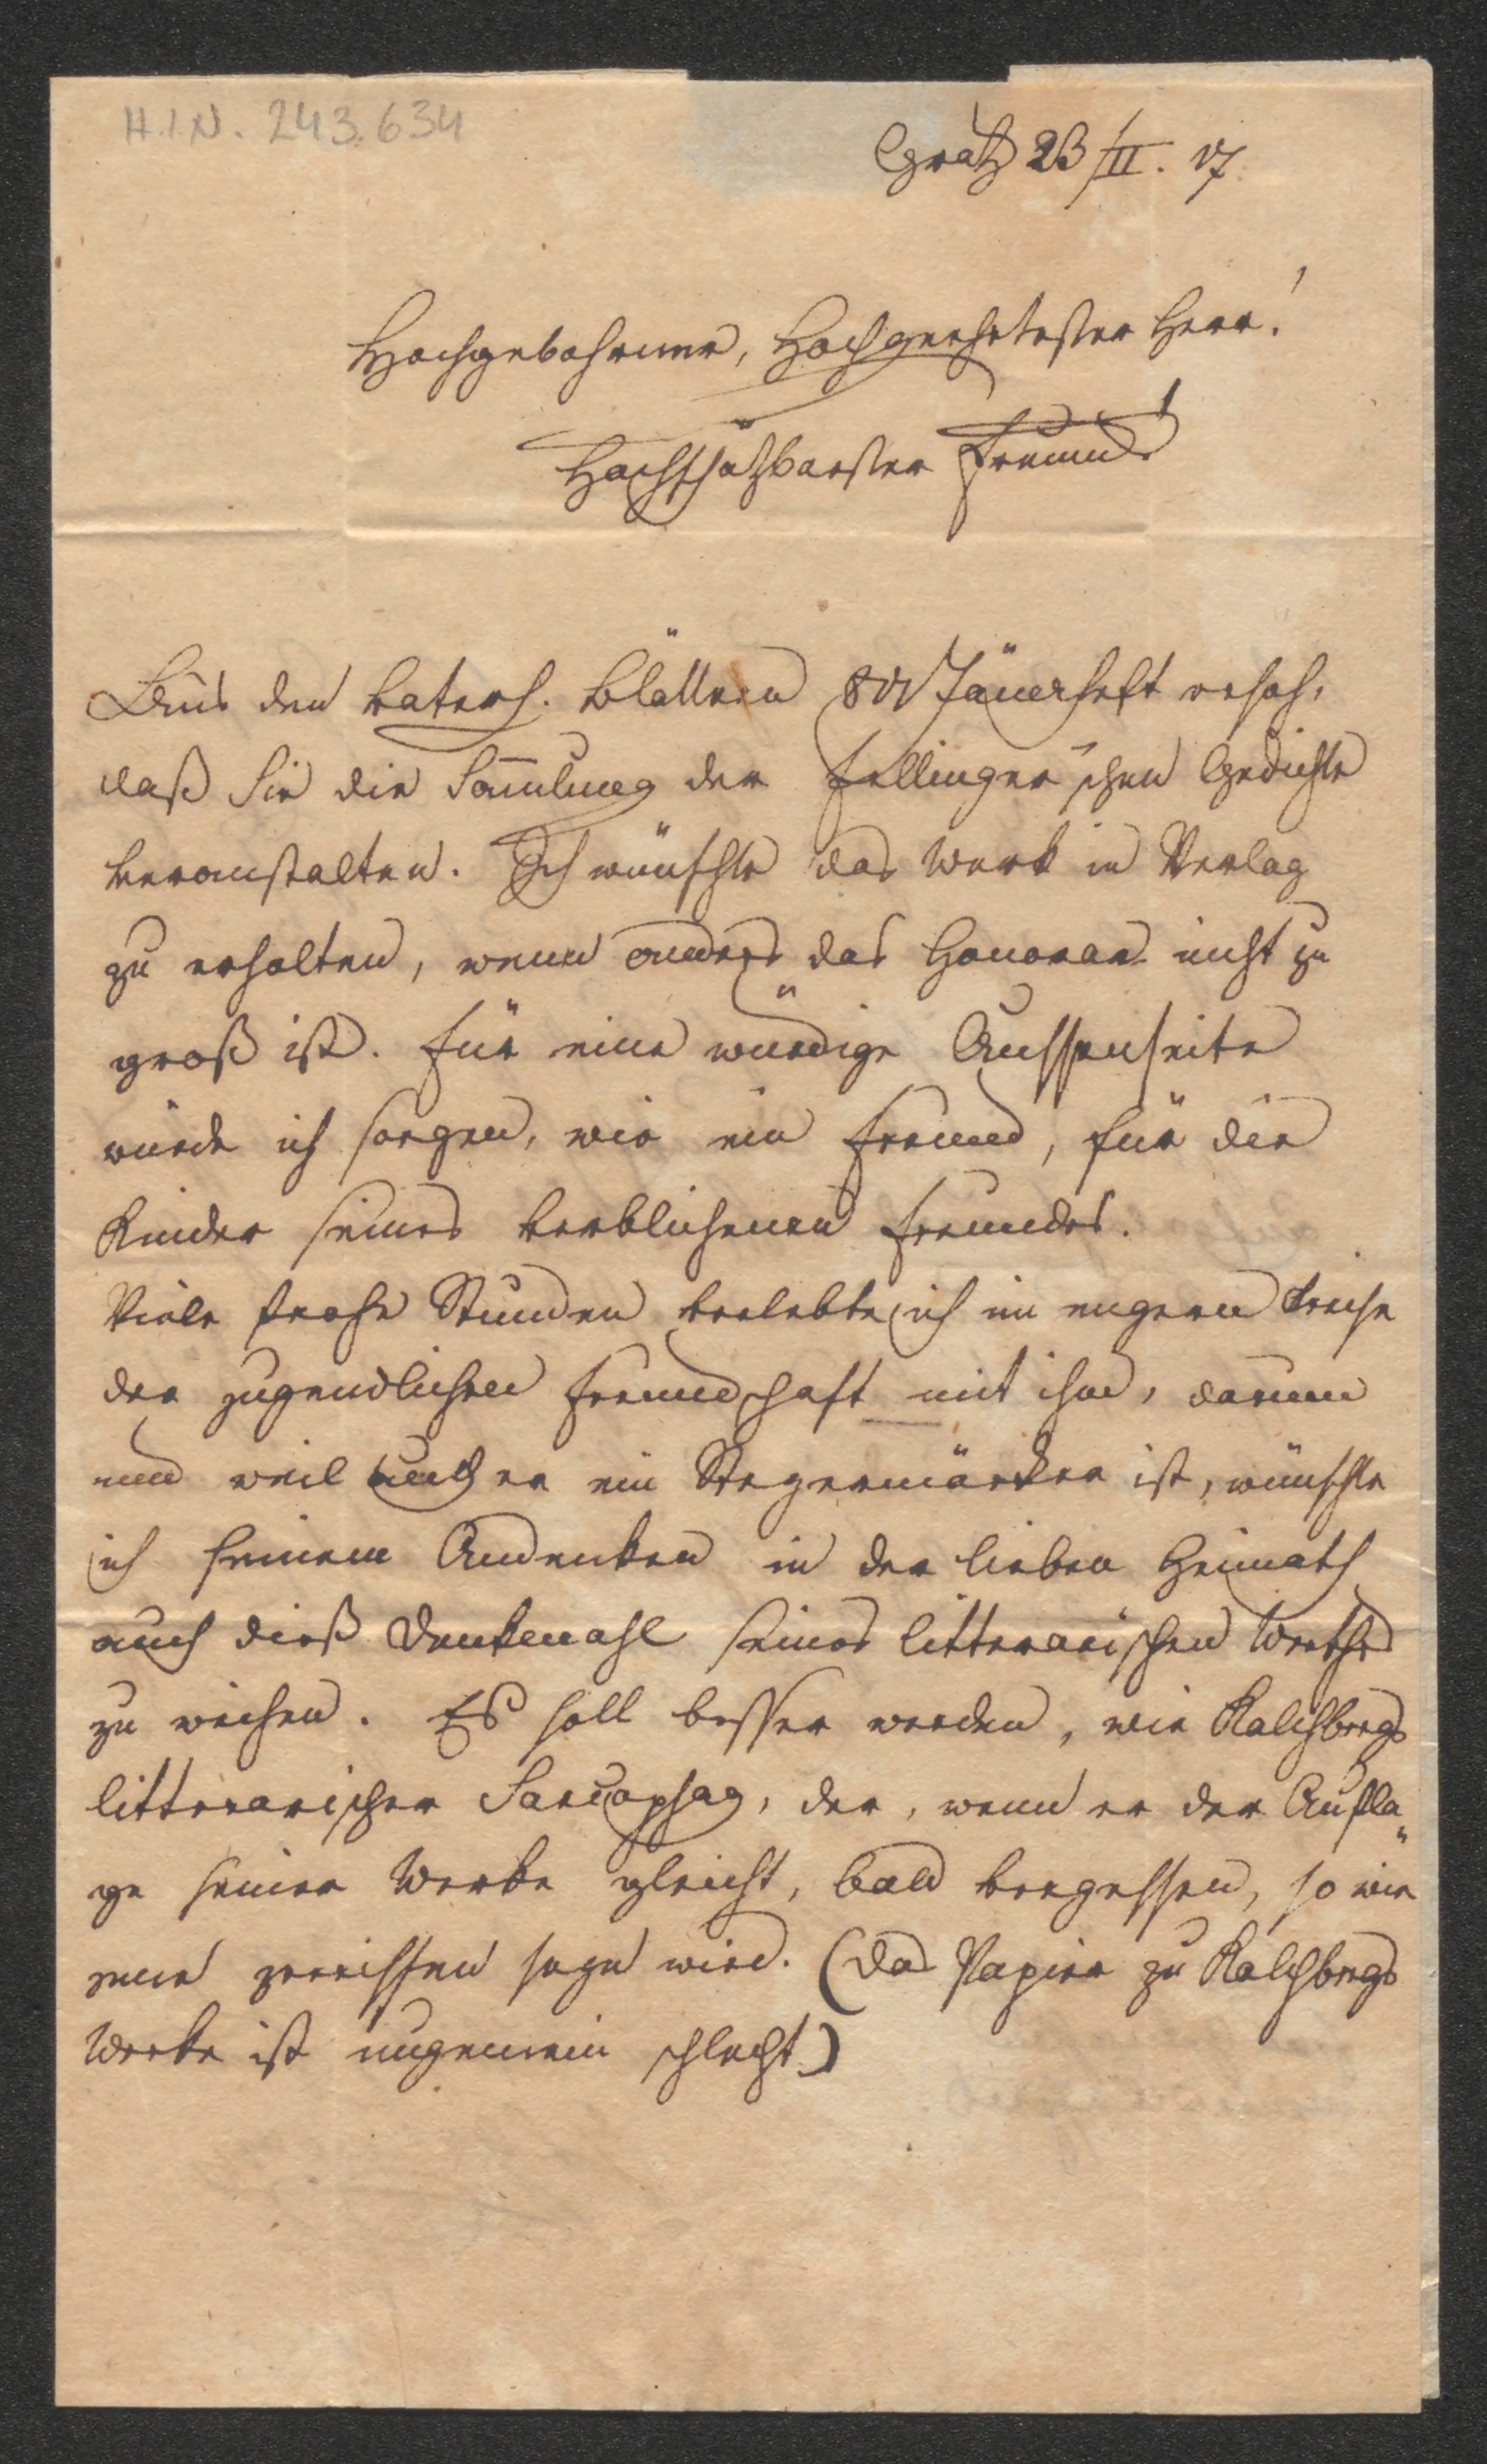 H.I.N. 243.634
Grätz 23/II. 17.
Hochgebohrner, Hochgeehrtester Herr!
Hochschätzbarster Freund!
Aus den vaterl. Blättern Jänerheft ersah,
daß Sie die Sam̅lung der Fellinger'schen Gedichte
veranstalten. Ich wünschte das Werk in Verlag
zu erhalten, wenn anders das Honorar nicht zu
groß ist. Für eine würdige Aussenseite
würde ich sorgen, wie ein Freund, für die
Kinder seines verblichenen Freundes.
Viele frohe Stunden verlebte ich im engern Kreise
der jugendlichen Freundschaft mit ihm, darum
und weil auch er ein Steyermärker ist, wünschte
ich seinem Andenken in der lieben Heimath
auch dieß Denkmahl seines litterarischen Werthes
zu weihen. Es soll besser werden, wie Kalchbergs
litterarischer Sarcophag, der, wenn er der Aufla„
ge seiner Werke gleicht, bald vergessen, so wie
jene zerrissen seyn wird. (Das Papier zu Kalchbergs
Werke ist ungemein schlecht)